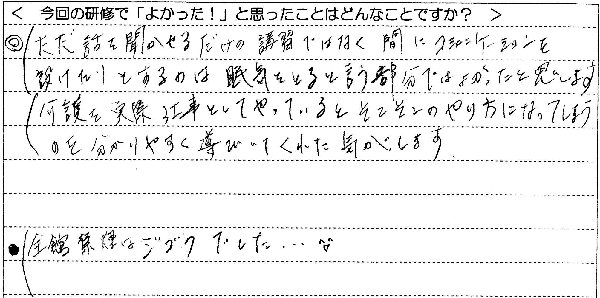 < 今回の研修で「よかった！」と思ったことはどんなことですか？ >
◎ ただ話を聞かせるだけの講習ではなく 間にコミュニケーションを
設けたりとするのは 眠気をとると言う部分ではよかったと思います
介護を実際仕事としてやっていると そこそこのやり方になってしまう
のを 分かりやすく導びいてくれた気がします
● 全館禁煙はジゴクでした…